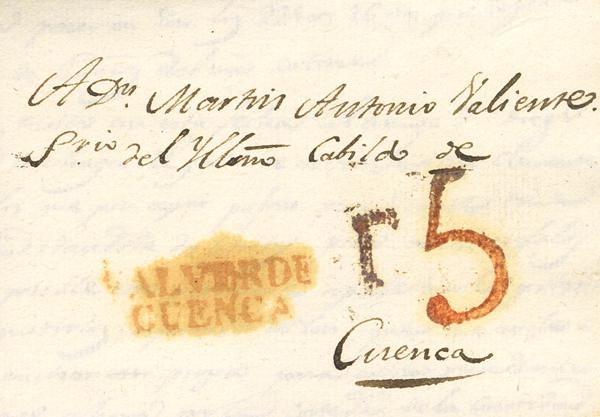 A Dn. Martin Antonio Valiente.
Srio del Yllmo Cabildo de
r 5
VALVERDE
CUENCA
Cuenca